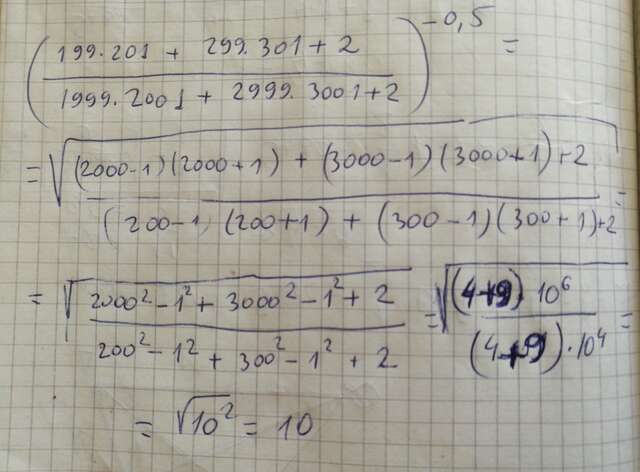 (199.201 + 299.301 + 2 / 1999.2001 + 2999.3001+2)^-0,5 =
= √((2000-1)(2000+1) + (3000-1)(3000+1)+2 / (200-1)(200+1) + (300-1)(300+1)+2) =
= √(2000²-1²+3000²-1²+2 / 200²-1²+300²-1²+2) = √((4+9)·10⁶ / (4+9)·10⁴) =
= √10² = 10